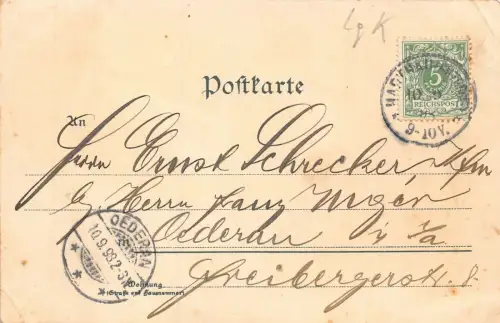 Lg K
Postkarte
5
REICHSPOST
10 9
9-10V.
An
Herrn Ernst Schrecker, Kfm
b/ Herrn Franz
Oederan i/Sa
Freibergerstr. 8.
OEDERAN
10.9.99.2-3N
Wohnung
(Straße und Hausnummer)